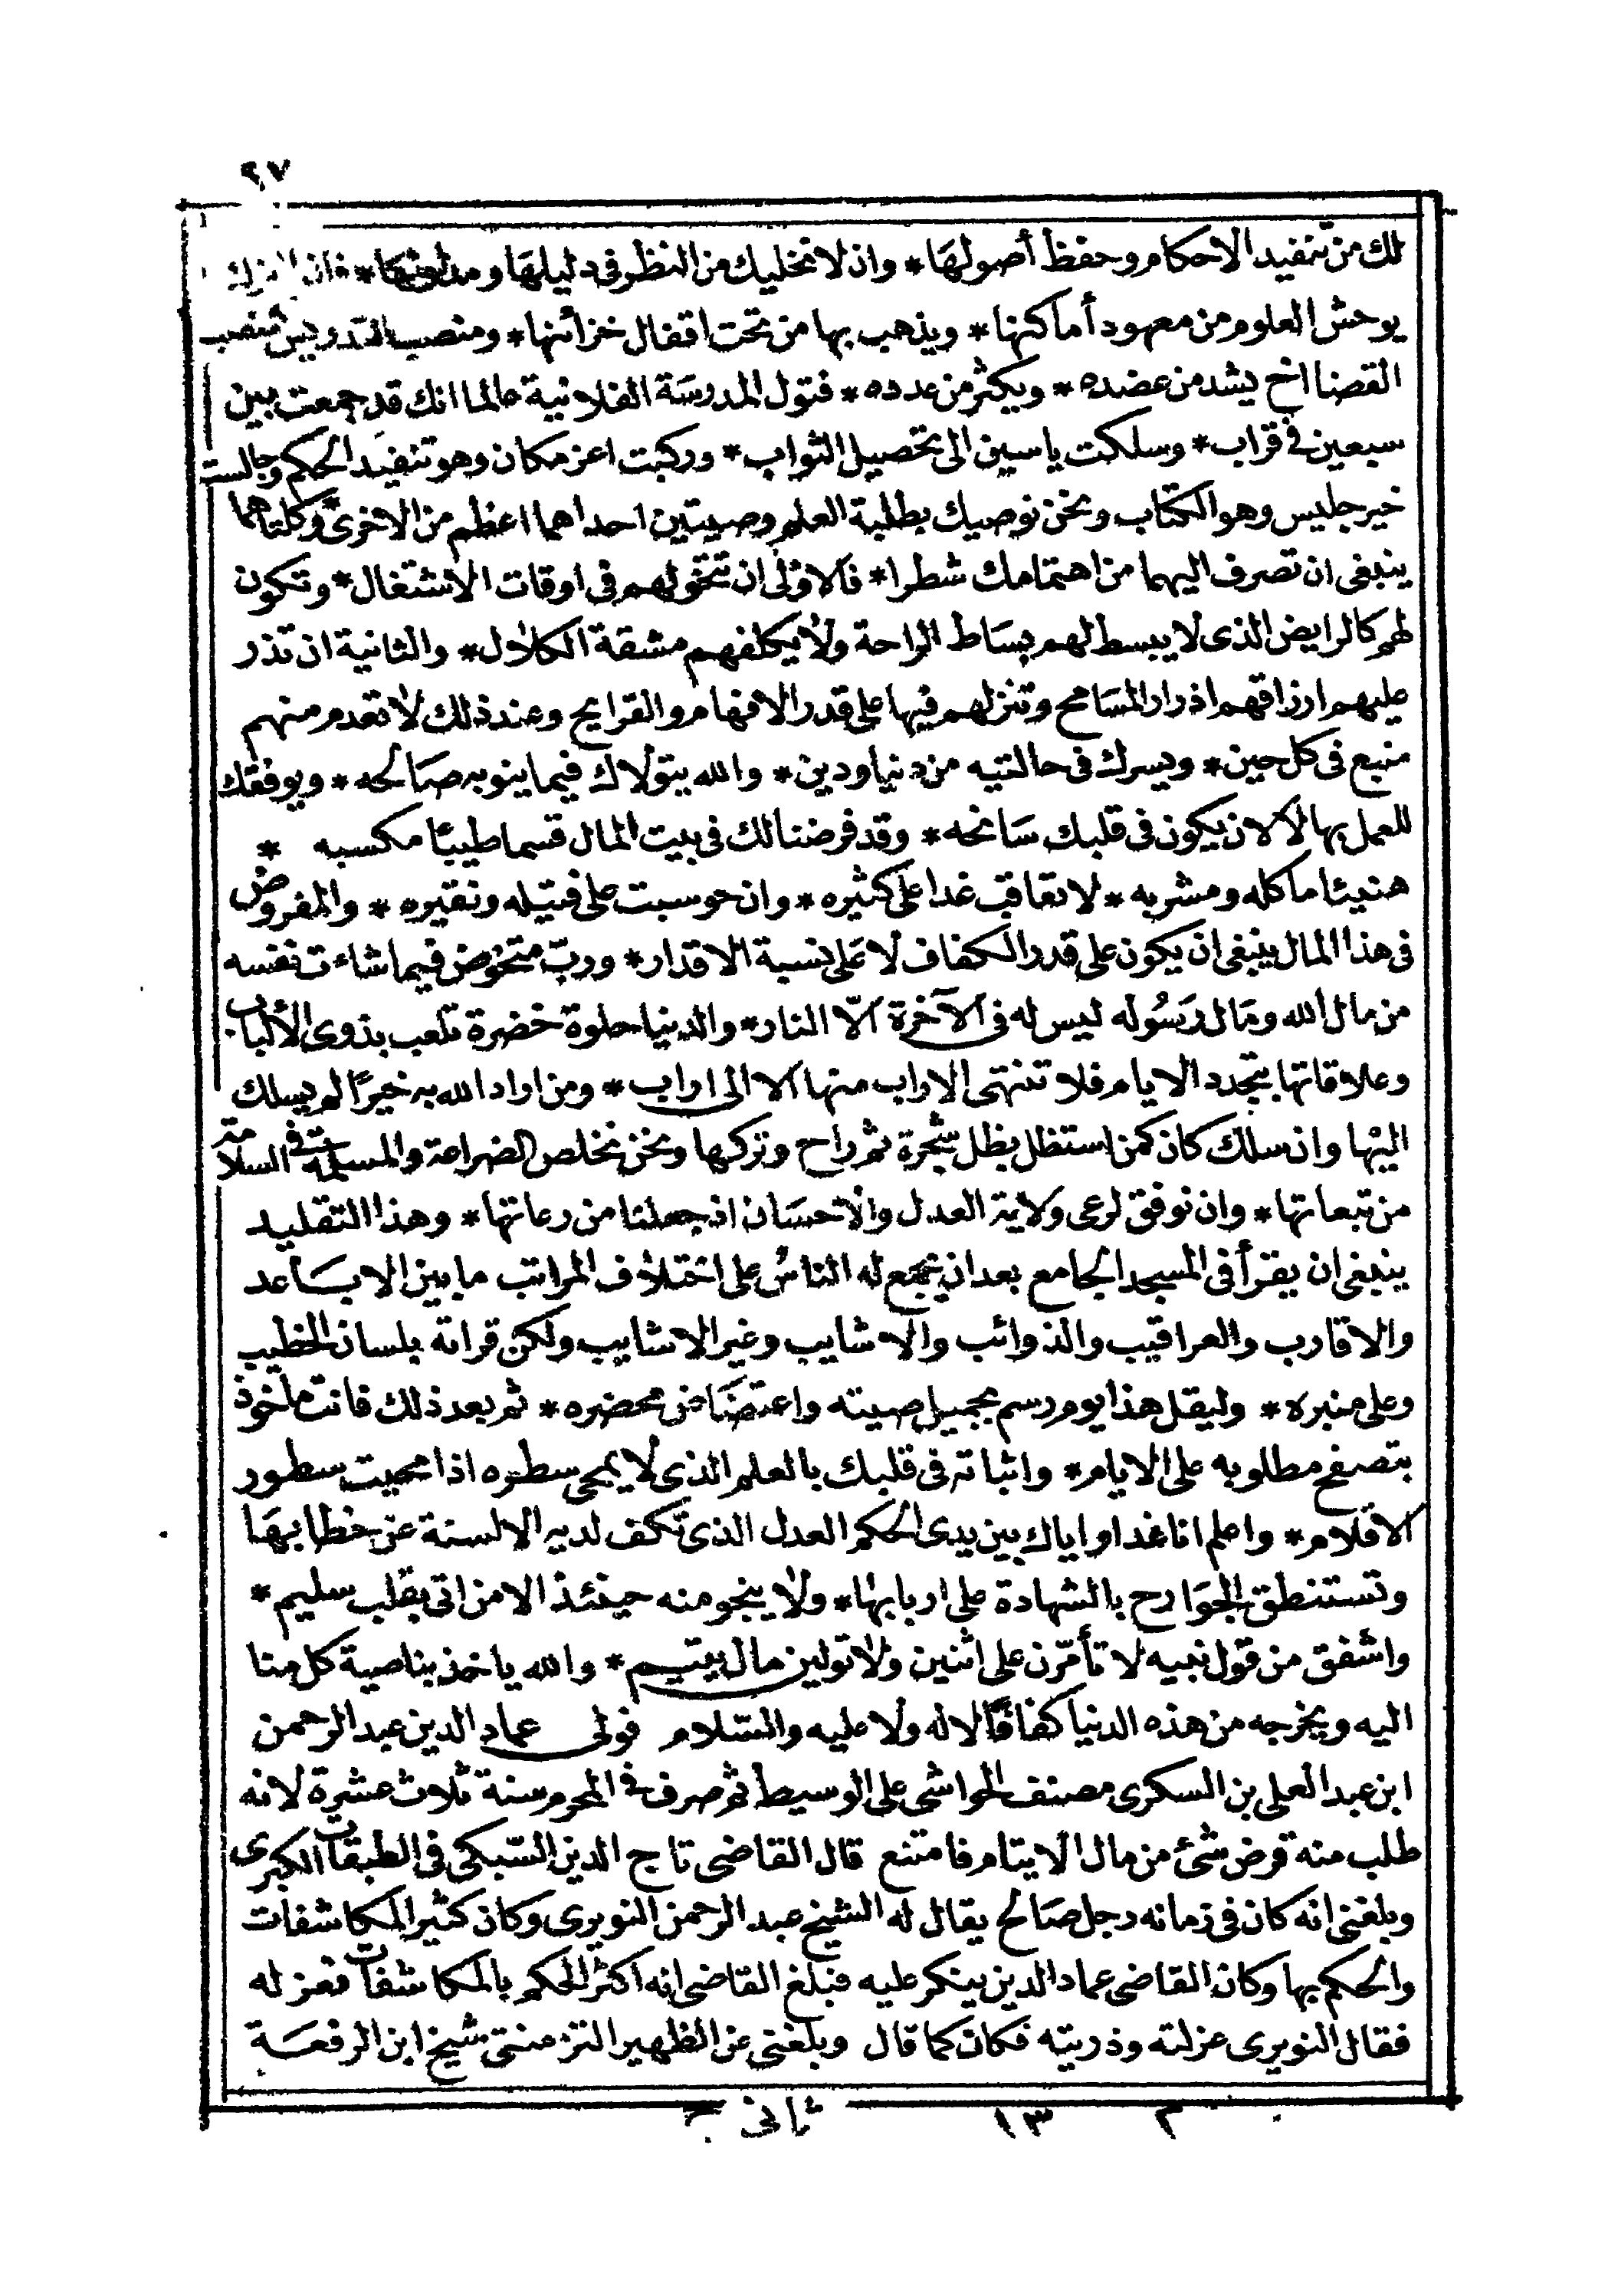 ٩٧
لك من تنفيذ الاحكام وحفظ أصولها * وان لا تخليك من النظر فى دليلها ومدلولها * فان الترك
يوحش العلوم من معهود أماكنها * ويذهب بها من تحت اقفال خزائنها * ومنصب التدريس منصب
القضا اخ يشد من عضده * ويكثر من عدده * فتول المدرسة الفلانية عالما انك قد جمعت بين
سيعين فى قراب * وسلكت يا سين الى تحصيل الثواب * وركبت اعز مكان وهو تنفيذ الحكم وجالست
خير جليس وهو الكتاب ونحن نوصيك بطلبة العلم وصيتين احداهما اعظم من الاخرى * وكلتاهما
ينبغى ان تصرف اليهما من اهتمامك شطرا * فالاولى ان تتخولهم فى اوقات الاشتغال * وتكون
لهم كالرايض الذى لا يبسط لهم بساط الراحة ولا يكلفهم مشقة الكلال * والثانية ان تذر
عليهم ارزاقهم اذرار المسامح وتنزلهم فيها على قدر الافهام والقرايح وعند ذلك لا تعدم منهم
منبع فى كل حين * ويسرك فى حالتيه من دنيا ودين * والله يتولاك فيما ينوبه صالحه * ويوفقك
للعمل بها الا لان يكون فى قلبك سانحه * وقد فرضنا لك فى بيت المال قسما طيبا مكسبه *
هنيئا ماكله ومشربه * لا تعاقب غدا على كثيره * وان حوسبت على فتيله ونقيره * والمفروض
فى هذا المال ينبغى ان يكون على قدر الكفاف لا على نسبة الاقدار * ورب متخوض فيما شاءت نفسه
من مال الله ومال رسوله ليس له فى الآخرة الا النار * والدنيا حلوة خضرة تلعب بذوى الألباب
وعلاقاتها بتجدد الايام فلا تنتهى الاراب منها الا الى اراب * ومن اراد الله به خيرا لم يسلك
اليها وان سلك كان كمن استظل بظل شجرة ثم راح وتركها ونحن نخلص الضراعة والمسئلة فى السلامة
من تبعاتها * وان نوفق لرعى ولاية العدل والاحسان اذ جعلنا من رعاتها * وهذا التقليد
ينبغى ان يقرأ فى المسجد الجامع بعد ان يجمع له الناس على اختلاف المراتب ما بين الاباعد
والاقارب والعراقيب والذوائب والاشايب وغير الاشايب ولكن قراته بلسان الخطيب
وعلى منبره * وليقل هذا يوم رسم بجميل صيته واعتضاض محضره * ثم بعد ذلك فانت ماخوذ
بتصفح مطلوبه على الايام * واثباته فى قلبك بالعلم الذى لا يمحى سطره اذا محيت سطور
الاقلام * واعلم انا غدا واياك بين يدى الحكم العدل الذى تكف لديه الالسنة عن خطابها
وتستنطق الجوارح بالشهادة على اربابها * ولا ينجو منه حينئذ الا من اتى بقلب سليم *
واشفق من قول نبيه لا تأمرن على اثنين ولا تولين مال يتيم * والله ياخذ بناصية كل منا
اليه ويخرجه من هذه الدنيا كفافا لا له ولا عليه والسلام فولى عماد الدين عبد الرحمن
ابن عبد العلى بن السكرى مصنف الحواشى على الوسيط ثم صرف فى المحرم سنة ثلاث عشرة لانه
طلب منه قرض شئ من مال الايتام فامتنع قال القاضى تاج الدين السبكى فى الطبقات الكبرى
وبلغنى انه كان فى زمانه رجل صالح يقال له الشيخ عبد الرحمن النويرى وكان كثير المكاشفات
والحكم بها وكان القاضى عماد الدين ينكر عليه فبلغ القاضى انه اكثر الحكم بالمكاشفات فعزله
فقال النويرى عزلته وذريته فكان كما قال وبلغنى عن الظهير التزمنتى شيخ ابن الرفعة
م ١٣ ثانى